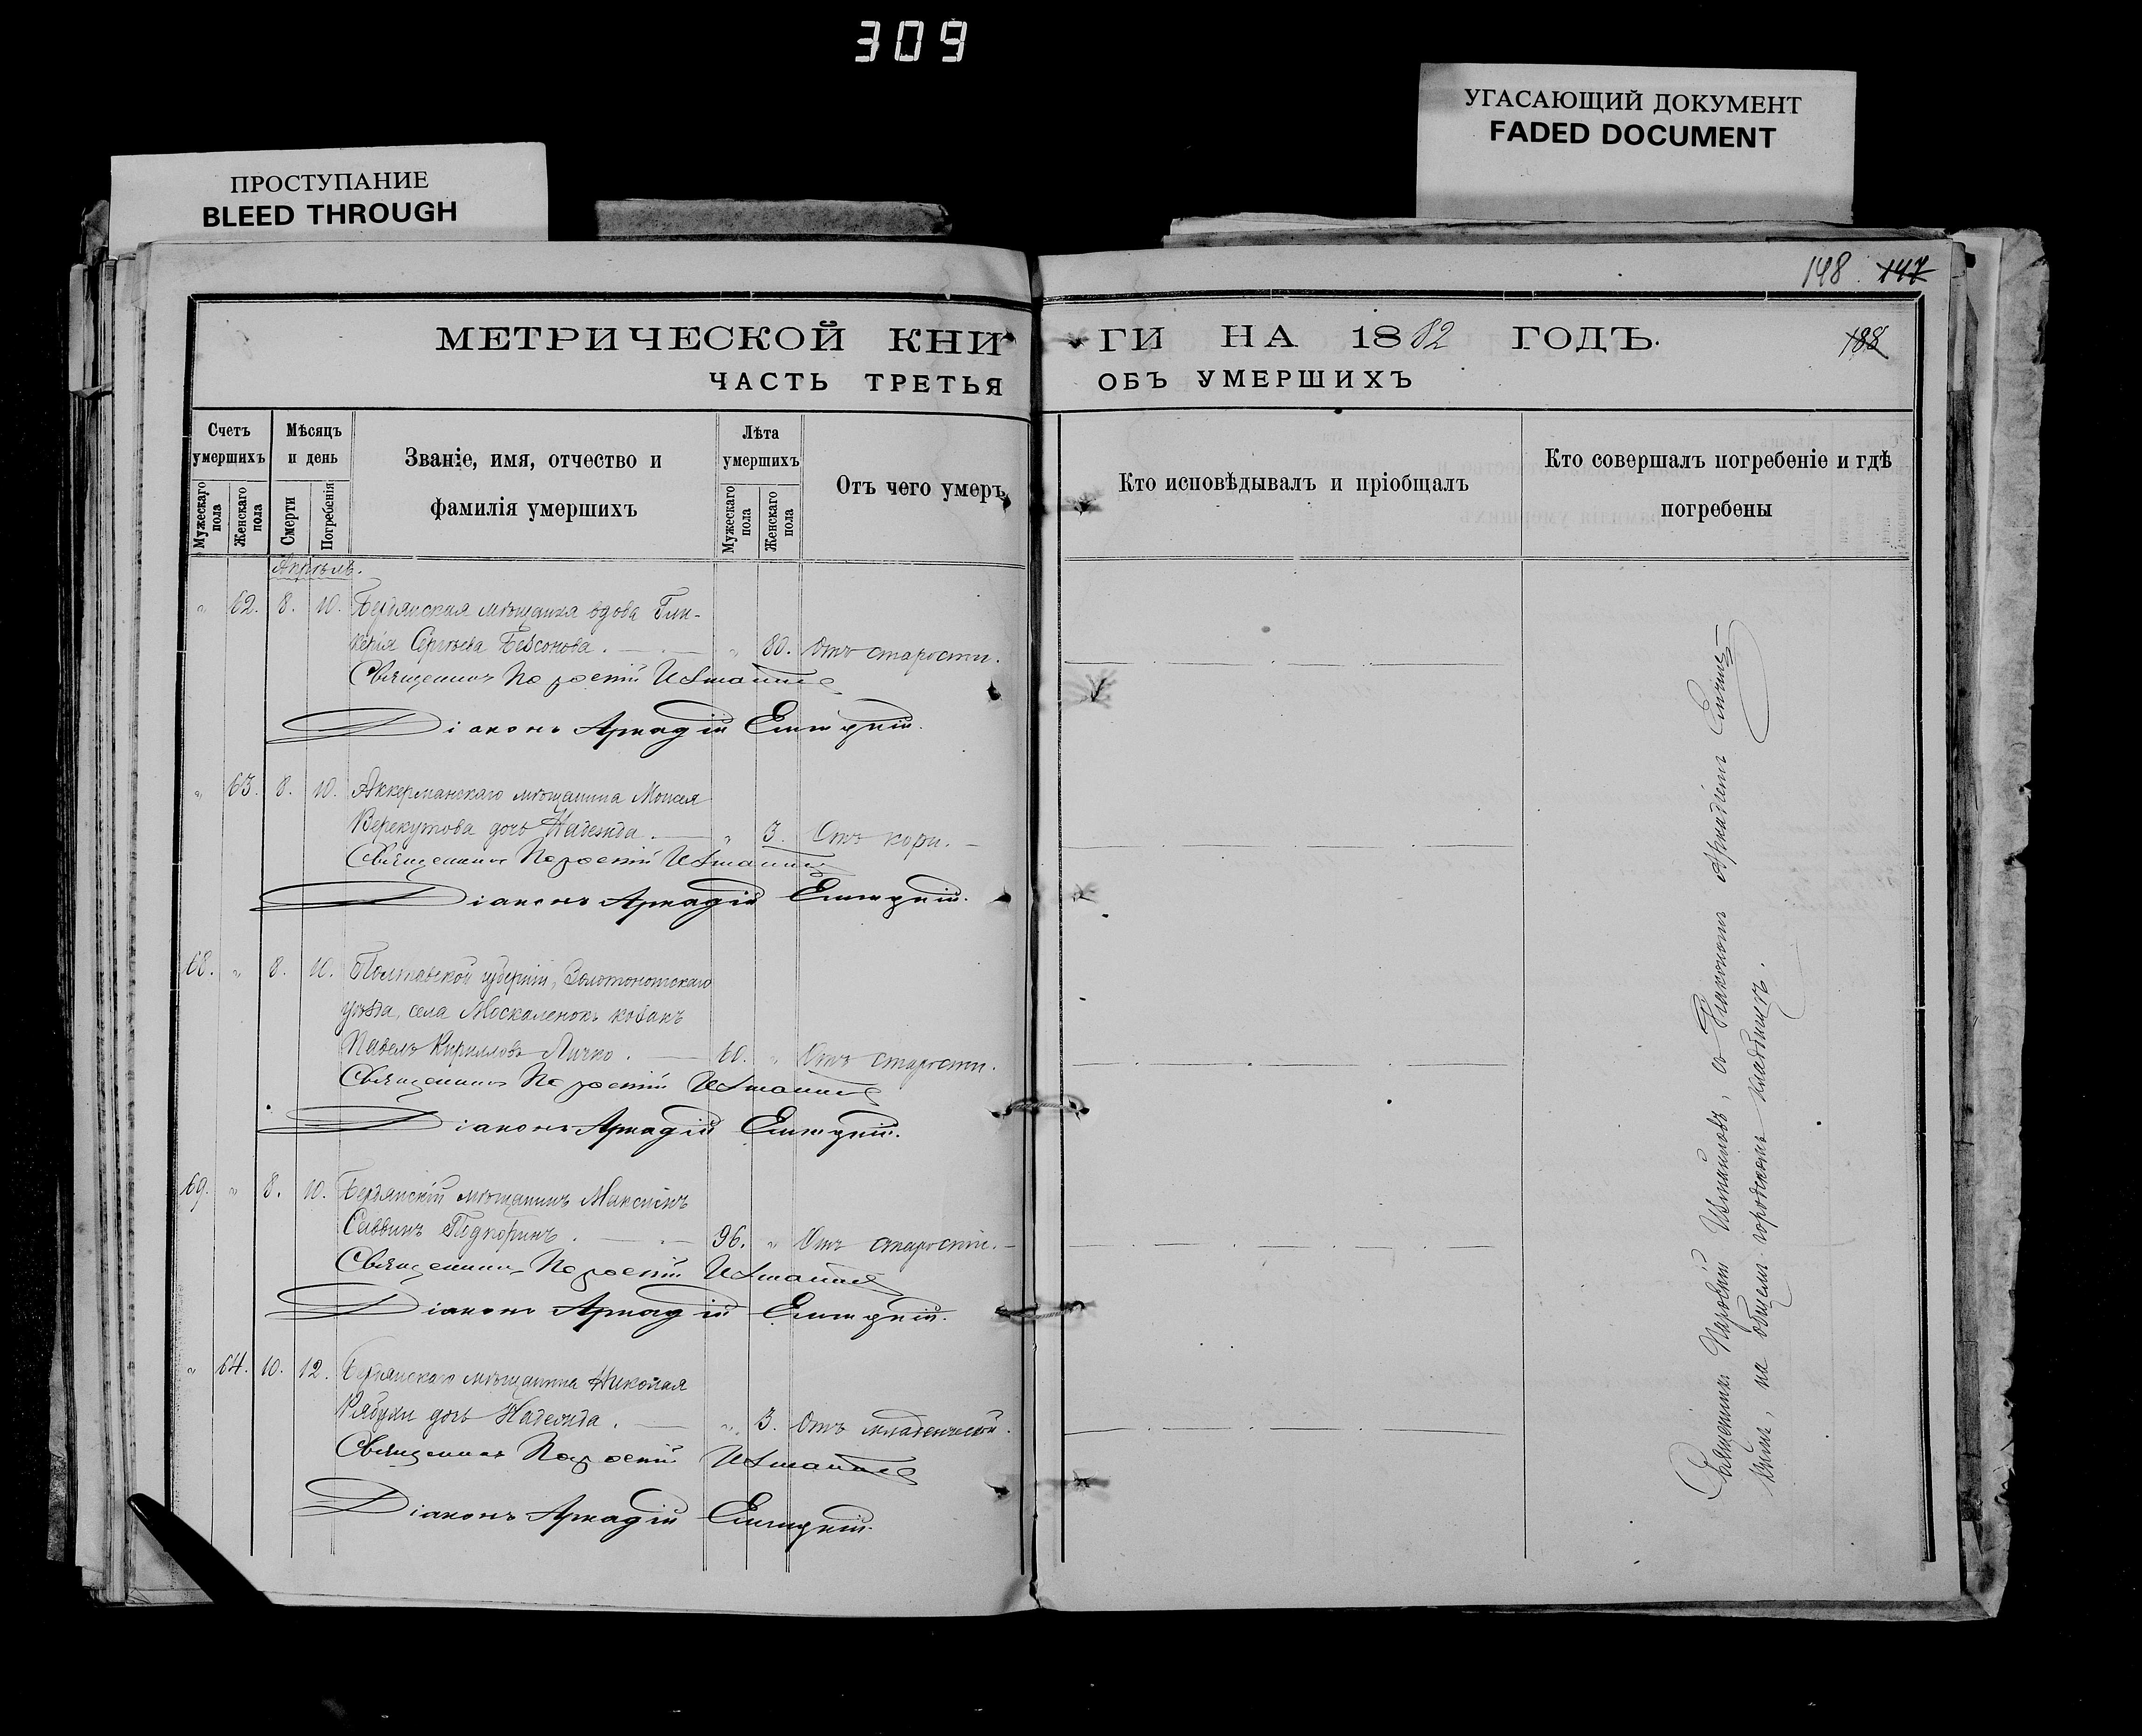 309
УГАСАЮЩИЙ ДОКУМЕНТ
FADED DOCUMENT
ПРОСТУПАНИЕ
BLEED THROUGH
148. 147
МЕТРИЧЕСКОЙ КНИГИ НА 1882 ГОДЪ.
188
ЧАСТЬ ТРЕТЬЯ ОБЪ УМЕРШИХЪ
Счетъ умершихъ
Мужескаго пола
Женскаго пола
Мѣсяцъ и день
Смерти
Погребенія
Званіе, имя, отчество и
фамилія умершихъ
Лѣта умершихъ
Мужескаго пола
Женскаго пола
Отъ чего умеръ
Кто исповѣдывалъ и пріобщалъ
Кто совершалъ погребеніе и гдѣ
погребены
Апрѣль.
" 62. 8. 10. Бердянская мѣщанка вдова Гли-
керія Сергѣева Безсонова. " 80. Отъ старости.
Священникъ
Діаконъ Аркадій
" 63. 8. 10. Аккерманскаго мѣщанина Моисея
Верекутова дочь Надежда. " 3. Отъ кори.
Священникъ
Діаконъ Аркадій
68. " 8. 10. Полтавской губерніи, Золотоношскаго
уѣзда, села Москаленокъ козакъ
Павелъ Кирилловъ Личко. 60. " Отъ старости.
Священникъ
Діаконъ Аркадій
69. " 8. 10. Бердянскій мѣщанинъ Максимъ
Саввинъ 96. " Отъ старости.
Священникъ
Діаконъ Аркадій
" 64. 10. 12. Бердянскаго мѣщанина Николая
Рябухи дочь Надежда. " 3. Отъ младенческой.
Священникъ
Діаконъ Аркадій
Священникъ Измаиловъ, съ Діакономъ Аркадіемъ
на общемъ городскомъ кладбищѣ.